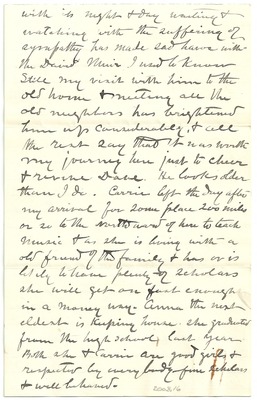 with is night & day waiting &
watching with the suffering &
sympathy has made sad havoc with
the David Muir I used to know
Still my visit with him to the
old home & meeting all the
old neighbors has brightened
him up considerably, & all
the rest say that it was worth
my journey here just to cheer
& revive Dave. He looks older
than I do. Carrie left the day after
my arrival for some place 200 miles
or so to the northward of here to teach
music & as she is living with a
old friend of the family & has or is
likely to have plenty of scholars
she will get on fast enough
in a money way. Anna the next
eldest is keeping house. she graduated
from the high school last year.
Both she & Carrie are good girls &
respected by everybody fine scholars
& well behaved.